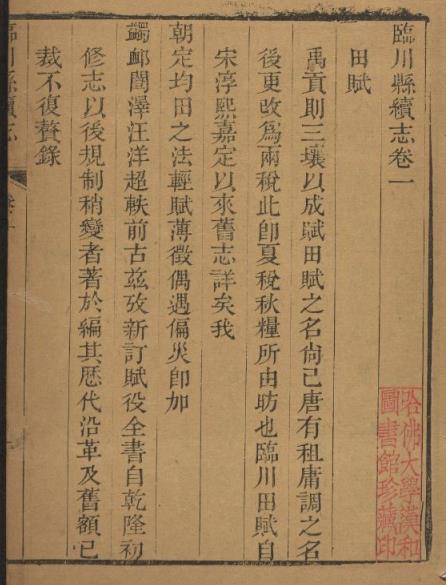 臨川縣續志卷一
田賦
禹貢則三壤以成賦田賦之名尙已唐有租庸調之名
後更改爲兩稅此卽夏稅秋糧所由昉也臨川田賦自
宋淳熙嘉定以來舊志詳矣我
朝定均田之法輕賦薄徵偶遇偏災卽加
蠲卹闓澤汪洋超軼前古茲攷新訂賦役全書自乾隆初
修志以後規制稍變者著於編其歷代沿革及舊額已
裁不復贅錄
臨川縣續志
卷一
哈佛大學漢和
圖書館珍藏印